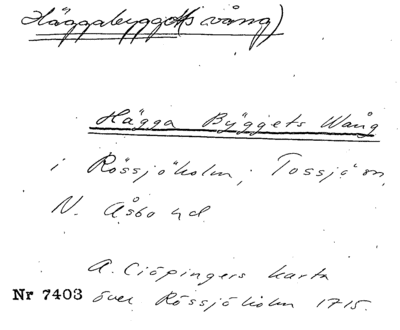 Häggabygget(s vång)
Hägga Byggets Wång
i Rössjöholm, Tossjö sn,
N. Åsbo hd
A. Ciöpingers karta
Nr 7403 över Rössjöholm 1715.